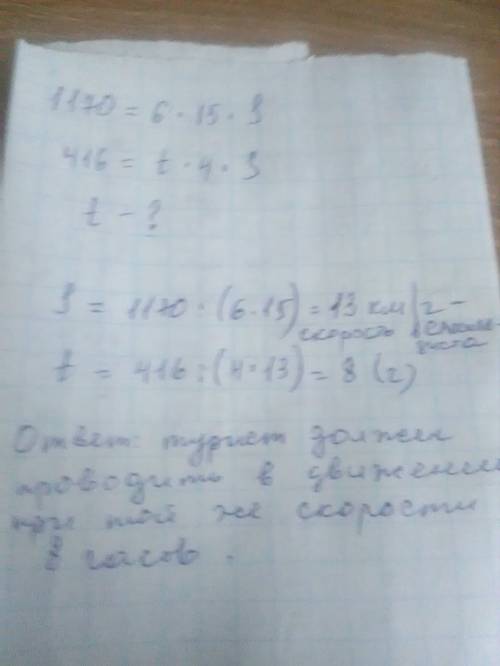 1170 = 6 · 15 · S
416 = t · 4 · S
t - ?
S = 1170 : (6·15) = 13 км/ч -
скорость
t = 416 : (4·13) = 8 (ч)
Ответ: турист должен
проводить в движении
при той же скорости
8 часов.